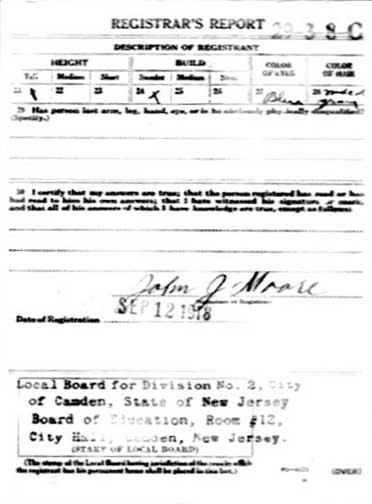 REGISTRAR'S REPORT 29-3-8-C
DESCRIPTION OF REGISTRANT
HEIGHT BUILD COLOR OF EYES COLOR OF HAIR
Tall Medium Short Slender Medium Stout
21 X 22 23 24 X 25 26 27 Blue 28 gray
29 Has person lost arm, leg, hand, eye, or is he obviously physically disqualified?
(Specify.)
30 I certify that my answers are true; that the person registered has read or has
had read to him his own answers; that I have witnessed his signature or mark,
and that all of his answers of which I have knowledge are true, except as follows:
John J Moore
(Signature of Registrar)
Date of Registration SEP 12 1918
Local Board for Division No. 2, City
of Camden, State of New Jersey
Board of Education, Room #12,
City Hall, Camden, New Jersey.
(STAMP OF LOCAL BOARD)
(The stamp of the Local Board having jurisdiction of the area in which
the registrant has his permanent home shall be placed in this box.)
(OVER)